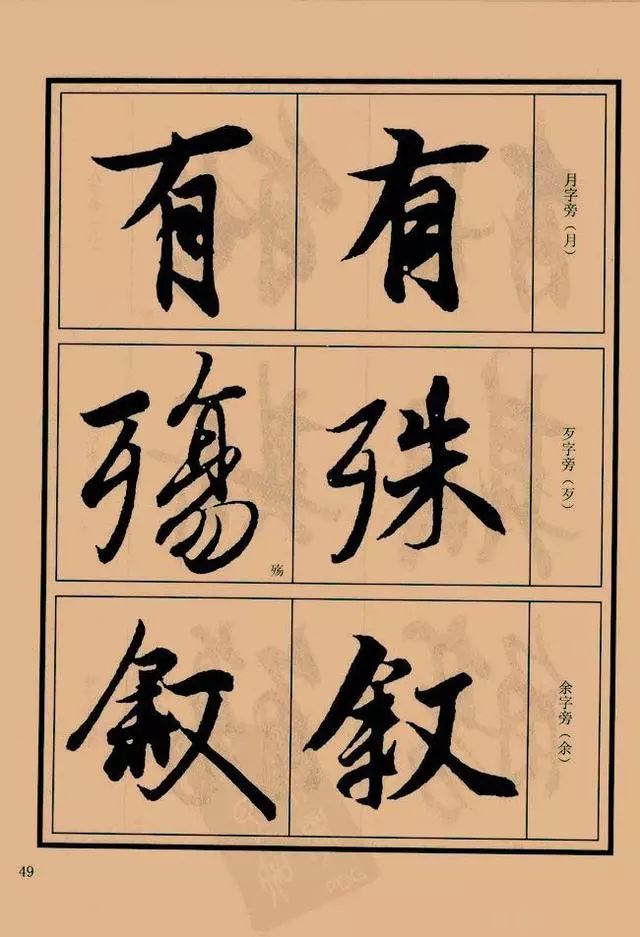 月字旁（月）
有
有
歹字旁（歹）
殊
殤
殇
余字旁（余）
叙
敘
49
PDG